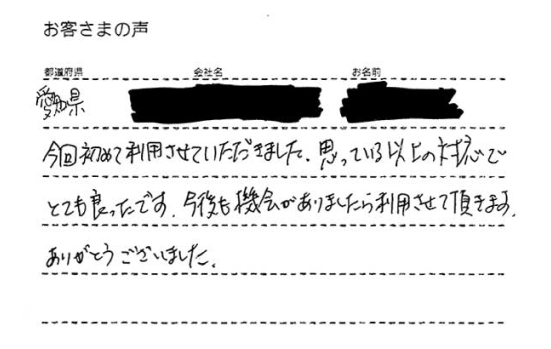 お客さまの声
都道府県 会社名 お名前
愛知県
今回初めて利用させていただきました。思っている以上の対応で
とても良ったです。今後も機会がありましたら利用させて頂きます。
ありがとうございました。